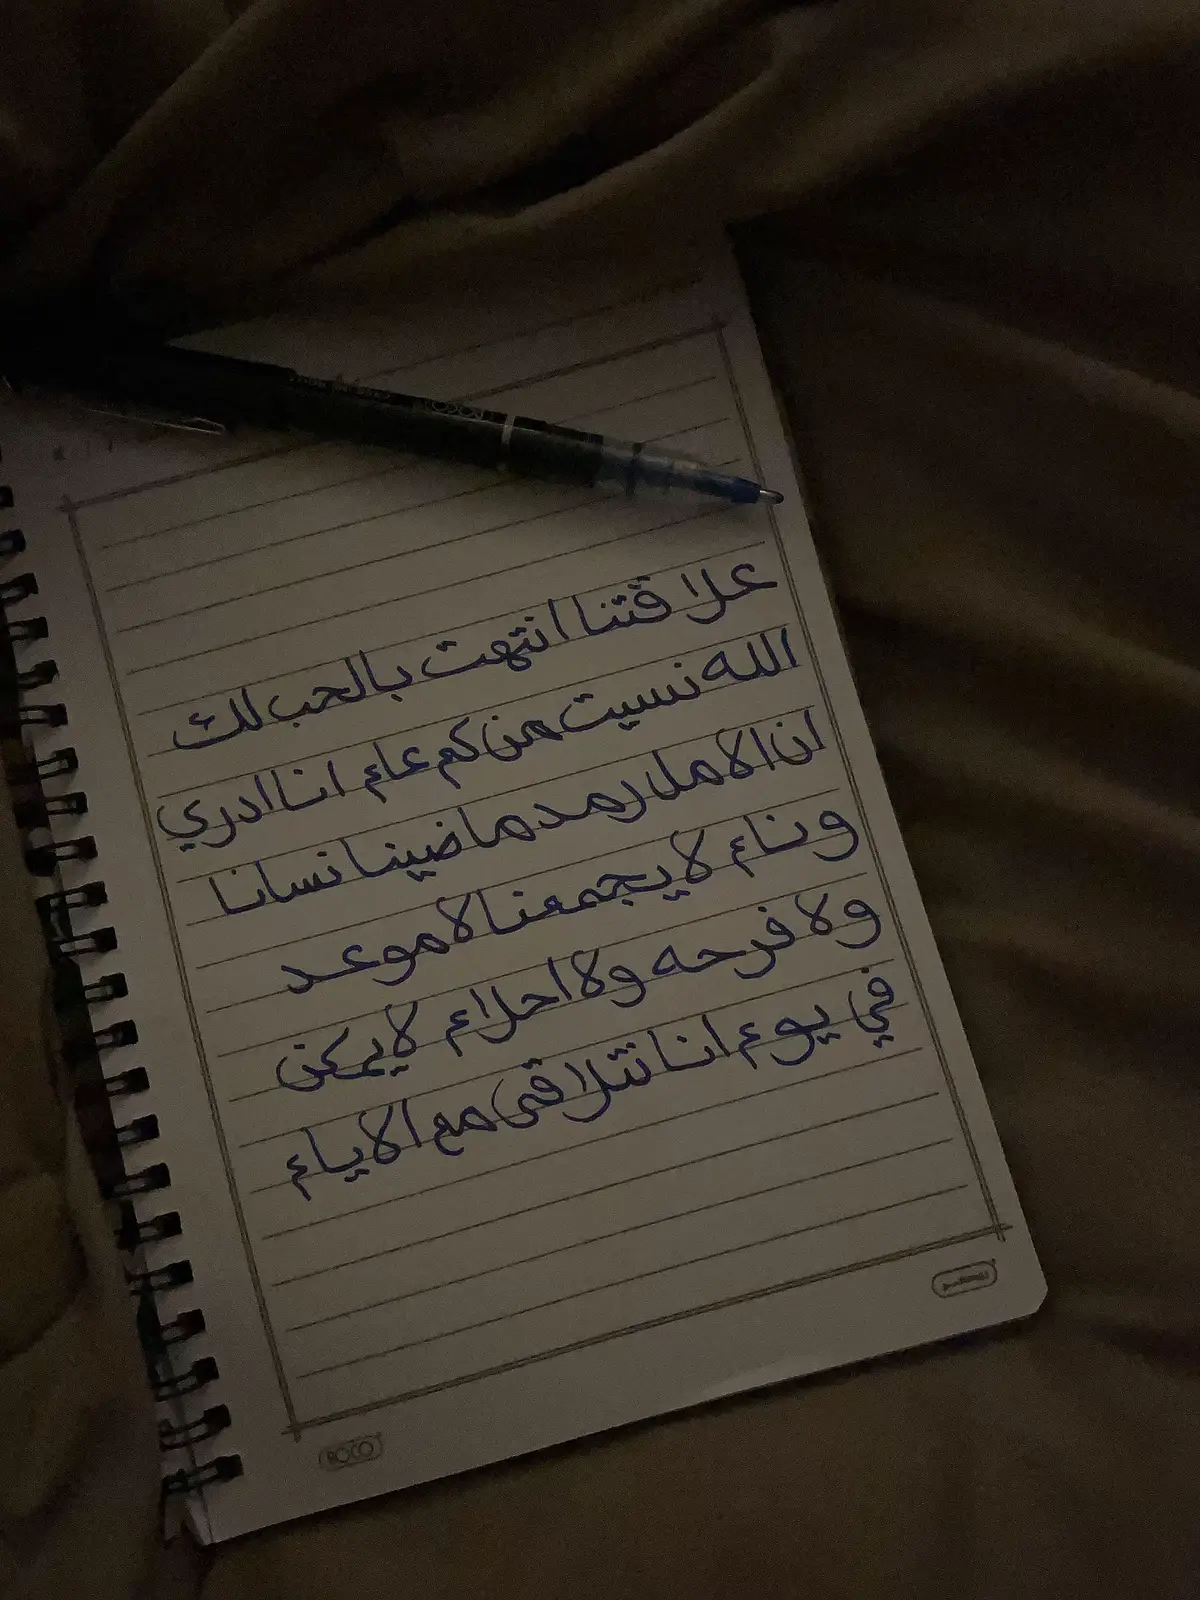 علاقتنا انتهت بالحب لك
الله نسيت من كم عام انا ادري
ان الامل رمد ماضينا نسانا
ونام لا يجمعنا لا موعد
ولا فرحه ولا احلام لا يمكن
في يوم انا نتلاقى مع الايام
ROCO